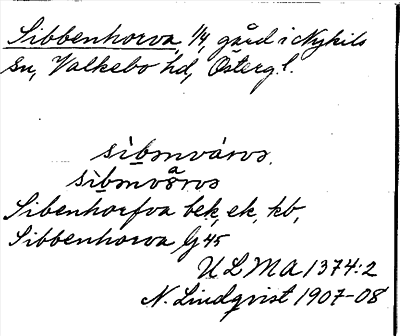 Sibbenhorva, 1/4, gård i Nykils
sn, Valkebo hd, Östergl.
sibmváros.
sibmvåros
Sibenhorfva bek, ek, kb,
Sibbenhorva G 45
ULMA 1374:2
N. Lindqvist 1907-08